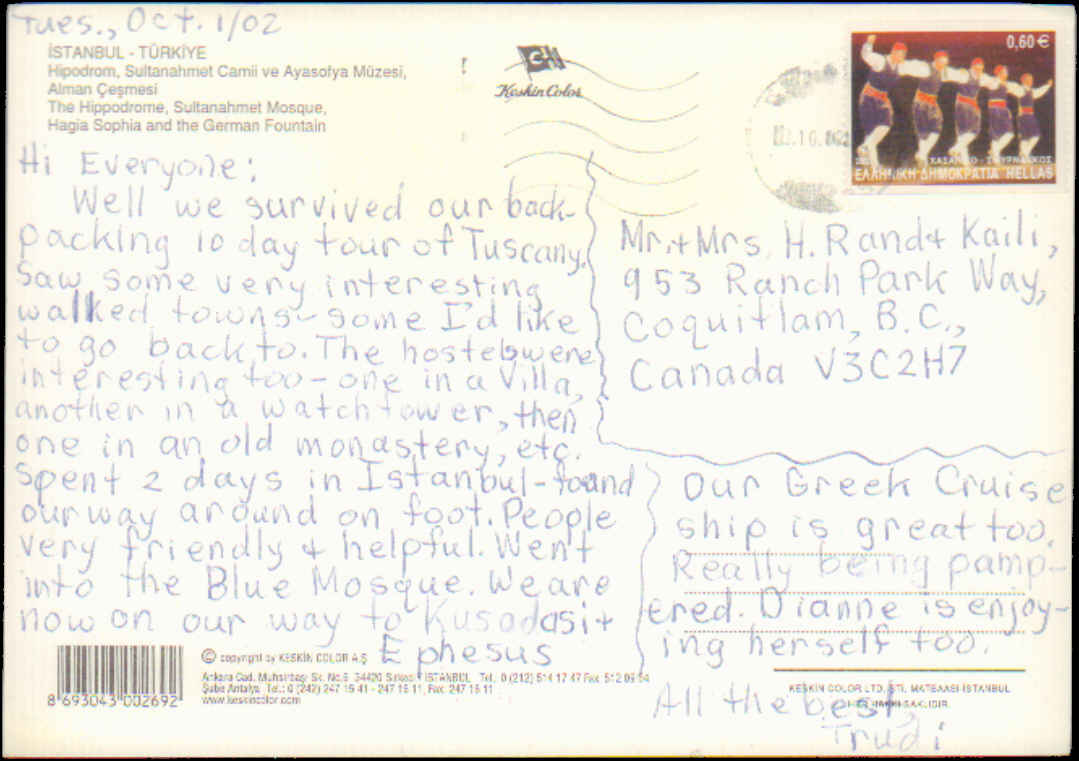 Tues., Oct. 1/02
İSTANBUL - TÜRKİYE
Hipodrom, Sultanahmet Camii ve Ayasofya Müzesi,
Alman Çeşmesi
The Hippodrome, Sultanahmet Mosque,
Hagia Sophia and the German Fountain
Keskin Color
0,60 €
ΕΛΛΗΝΙΚΗ ΔΗΜΟΚΡΑΤΙΑ HELLAS
Hi Everyone:
Well we survived our back-
packing 10 day tour of Tuscany.
Saw some very interesting
walked towns - some I'd like
to go back to. The hostels were
interesting too - one in a Villa,
another in a watchtower, then
one in an old monastery, etc.
Spent 2 days in Istanbul - found
our way around on foot. People
very friendly + helpful. Went
into the Blue Mosque. We are
now on our way to Kusadasi +
Ephesus
Mr. + Mrs. H. Rand + Kaili,
953 Ranch Park Way,
Coquitlam, B.C.,
Canada V3C2H7
Our Greek Cruise
ship is great too.
Really being pamp-
ered. Dianne is enjoy-
ing herself too.
All the best,
Trudi
8 693043 002692
© copyright by KESKİN COLOR A.Ş.
Ankara Cad. No.6 34420 İSTANBUL Tel.: 0 (212) 514 17 47 Fax: 512 09
Şube Antalya Tel.: 0 (242) 247 15 41 - 247 16 11, Fax: 247 15 11
www.keskincolor.com
KESKİN COLOR LTD. ŞTİ. MATBAASI İSTANBUL
HER HAKKI SAKLIDIR.